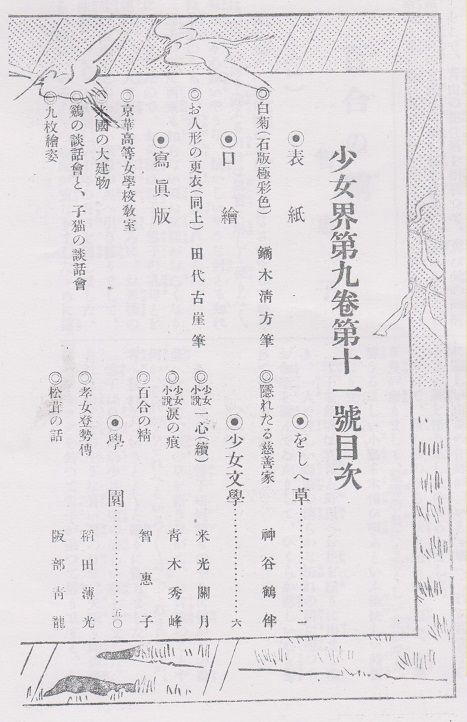 少女界第九卷第十一號目次
◉表紙
◎白菊(石版極彩色) 鏑木淸方筆
◉口繪
◎お人形の更衣(同上) 田代古崖筆
◉寫眞版
◎京華高等女學校敎室
◎米國の大建物
◎鷄の談話會と、子猫の談話會
◎九枚繪姿
◉をしへ草…………一
◎隱れたる慈善家 神谷鶴伴
◉少女文學…………六
◎少女小說一心(續) 米光關月
◎少女小說淚の痕 靑木秀峰
◎百合の精 智惠子
◉學園…………五〇
◎孝女登勢傳 稻田薄光
◎松茸の話 阪部靑龍